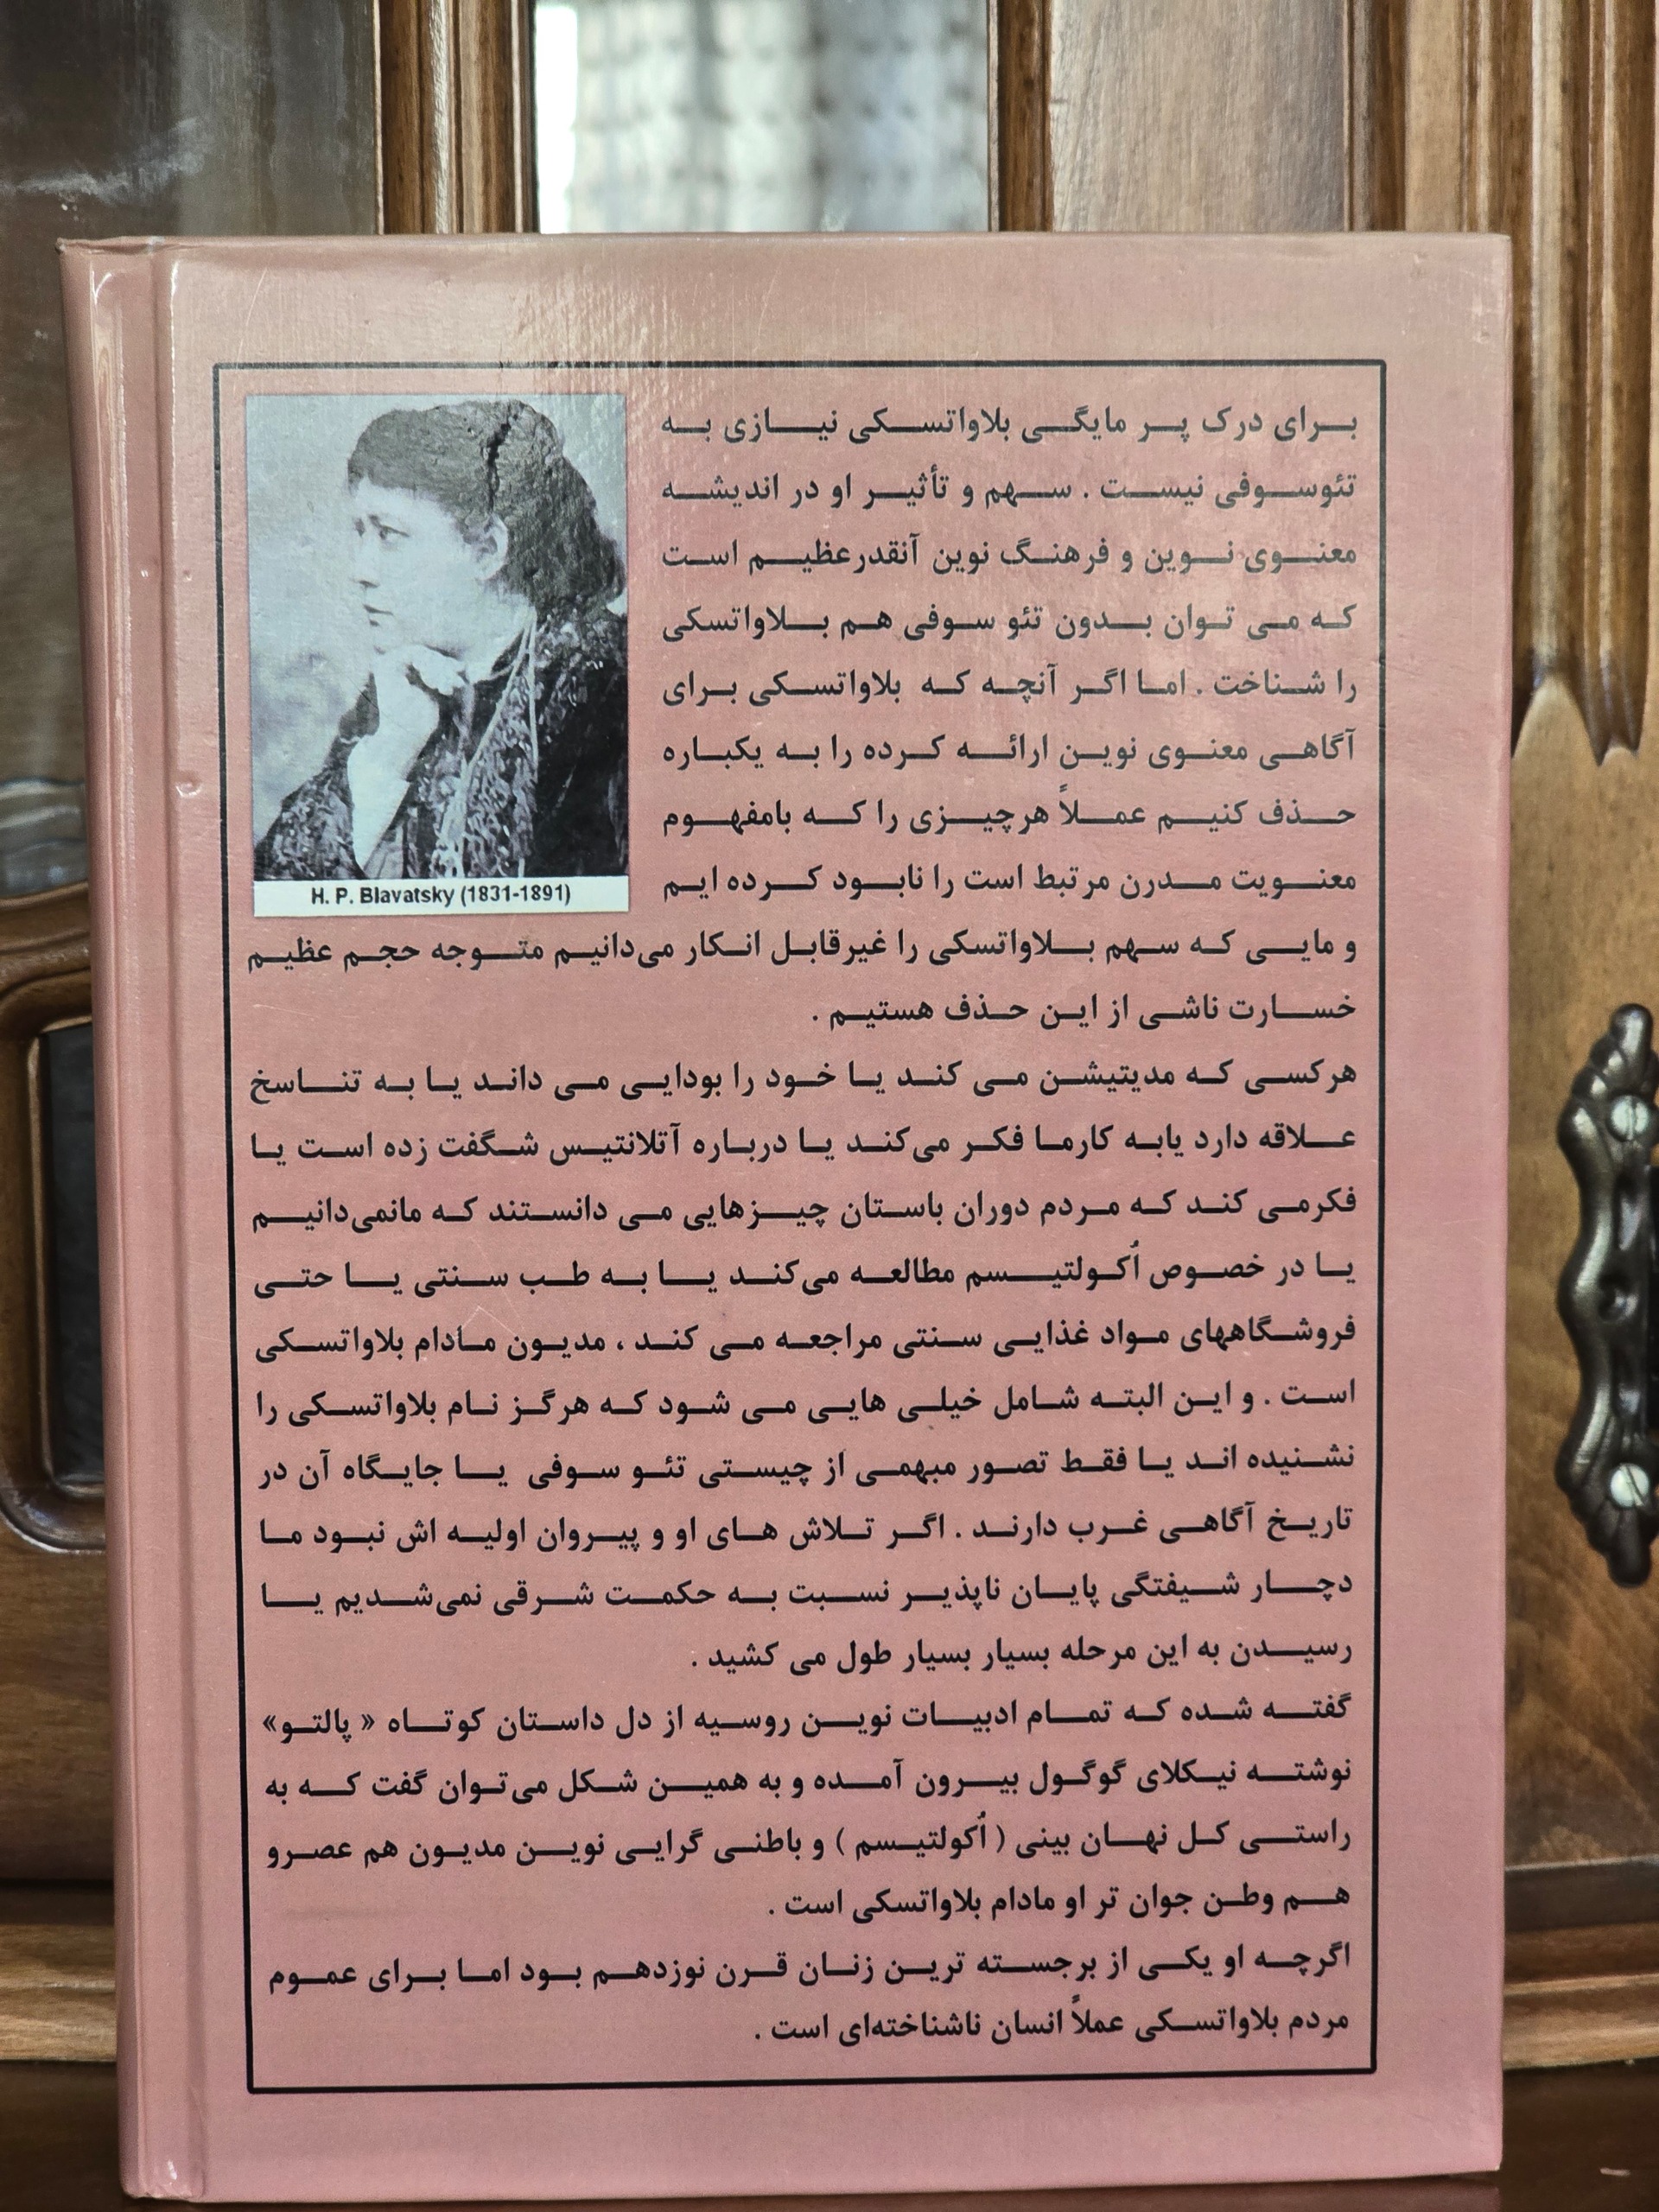 برای درک پر مایگی بلاواتسکی نیازی به
تئوسوفی نیست . سهم و تأثیر او در اندیشه
معنوی نوین و فرهنگ نوین آنقدرعظیم است
که می توان بدون تئو سوفی هم بلاواتسکی
را شناخت . اما اگر آنچه که بلاواتسکی برای
آگاهی معنوی نوین ارائه کرده را به یکباره
حذف کنیم عملاً هرچیزی را که بامفهوم
معنویت مدرن مرتبط است را نابود کرده ایم
H. P. Blavatsky (1831-1891)
و مایی که سهم بلاواتسکی را غیرقابل انکار می‌دانیم متوجه حجم عظیم
خسارت ناشی از این حذف هستیم .
هرکسی که مدیتیشن می کند یا خود را بودایی می داند یا به تناسخ
علاقه دارد یابه کارما فکر می‌کند یا درباره آتلانتیس شگفت زده است یا
فکرمی کند که مردم دوران باستان چیزهایی می دانستند که مانمی‌دانیم
یا در خصوص اُکولتیسم مطالعه می‌کند یا به طب سنتی یا حتی
فروشگاههای مواد غذایی سنتی مراجعه می کند ، مدیون مادام بلاواتسکی
است . و این البته شامل خیلی هایی می شود که هرگز نام بلاواتسکی را
نشنیده اند یا فقط تصور مبهمی از چیستی تئو سوفی یا جایگاه آن در
تاریخ آگاهی غرب دارند . اگر تلاش های او و پیروان اولیه اش نبود ما
دچار شیفتگی پایان ناپذیر نسبت به حکمت شرقی نمی‌شدیم یا
رسیدن به این مرحله بسیار بسیار طول می کشید .
گفته شده که تمام ادبیات نوین روسیه از دل داستان کوتاه « پالتو»
نوشته نیکلای گوگول بیرون آمده و به همین شکل می‌توان گفت که به
راستی کل نهان بینی ( اُکولتیسم ) و باطنی گرایی نوین مدیون هم عصرو
هم وطن جوان تر او مادام بلاواتسکی است .
اگرچه او یکی از برجسته ترین زنان قرن نوزدهم بود اما برای عموم
مردم بلاواتسکی عملاً انسان ناشناخته‌ای است .